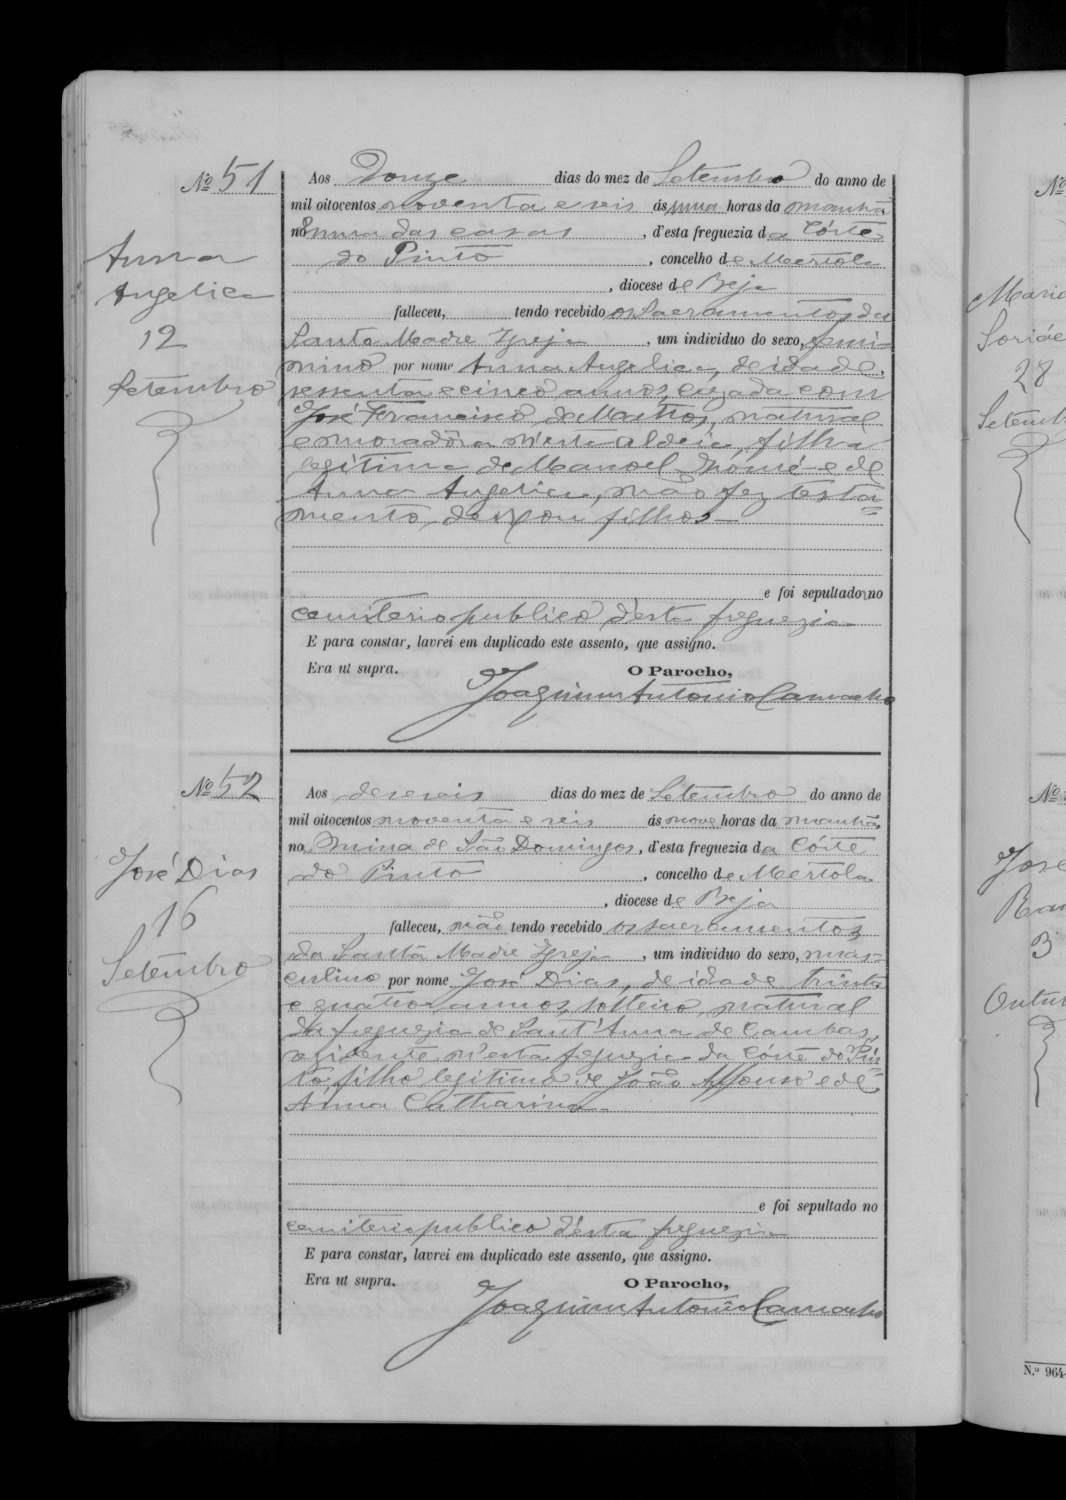 Nº 51
Anna
Angelica
12
Setembro
Aos Douze dias do mez de Setembro do anno de
mil oitocentos noventa e seis ás uma horas da manhã
numa das casas, d'esta freguezia da Córte
do Pinto, concelho de Mertola
, diocese de Beja
falleceu, tendo recebido os Sacramentos da
Santa Madre Igreja, um individuo do sexo, femi-
nino por nome Anna Angelica, de idade
sessenta e cinco annos, cazada com
José Francisco de Mattos, natural
e moradôra n'esta aldeia, filha
legitima de Manoel Thomé e de
Anna Angelica, não fez testa=
mento, deixou filhos
e foi sepultado no
cemiterio publico d'esta freguezia
E para constar, lavrei em duplicado este assento, que assigno.
Era ut supra. O Parocho,
Joaquim Antonio Camacho
Nº 52
José Dias
16
Setembro
Aos deseseis dias do mez de Setembro do anno de
mil oitocentos noventa e seis ás nove horas da manhã,
na Mina de São Domingos, d'esta freguezia da Córte
do Pinto, concelho de Mertola
, diocese de Beja
falleceu, não tendo recebido os sacramentos
da Santa Madre Igreja, um individuo do sexo, mas=
culino por nome José Dias, de idade trinta
e quatro annos, solteiro, natural
da freguezia de Sant'Anna de Cambas,
residente n'esta freguezia da Córte do Pin=
to, filho legitimo de João Affonso e de
Anna Catharina
e foi sepultado no
cemiterio publico d'esta freguezia
E para constar, lavrei em duplicado este assento, que assigno.
Era ut supra. O Parocho,
Joaquim Antonio Camacho
Nº
28
Nº
3
N.º 964